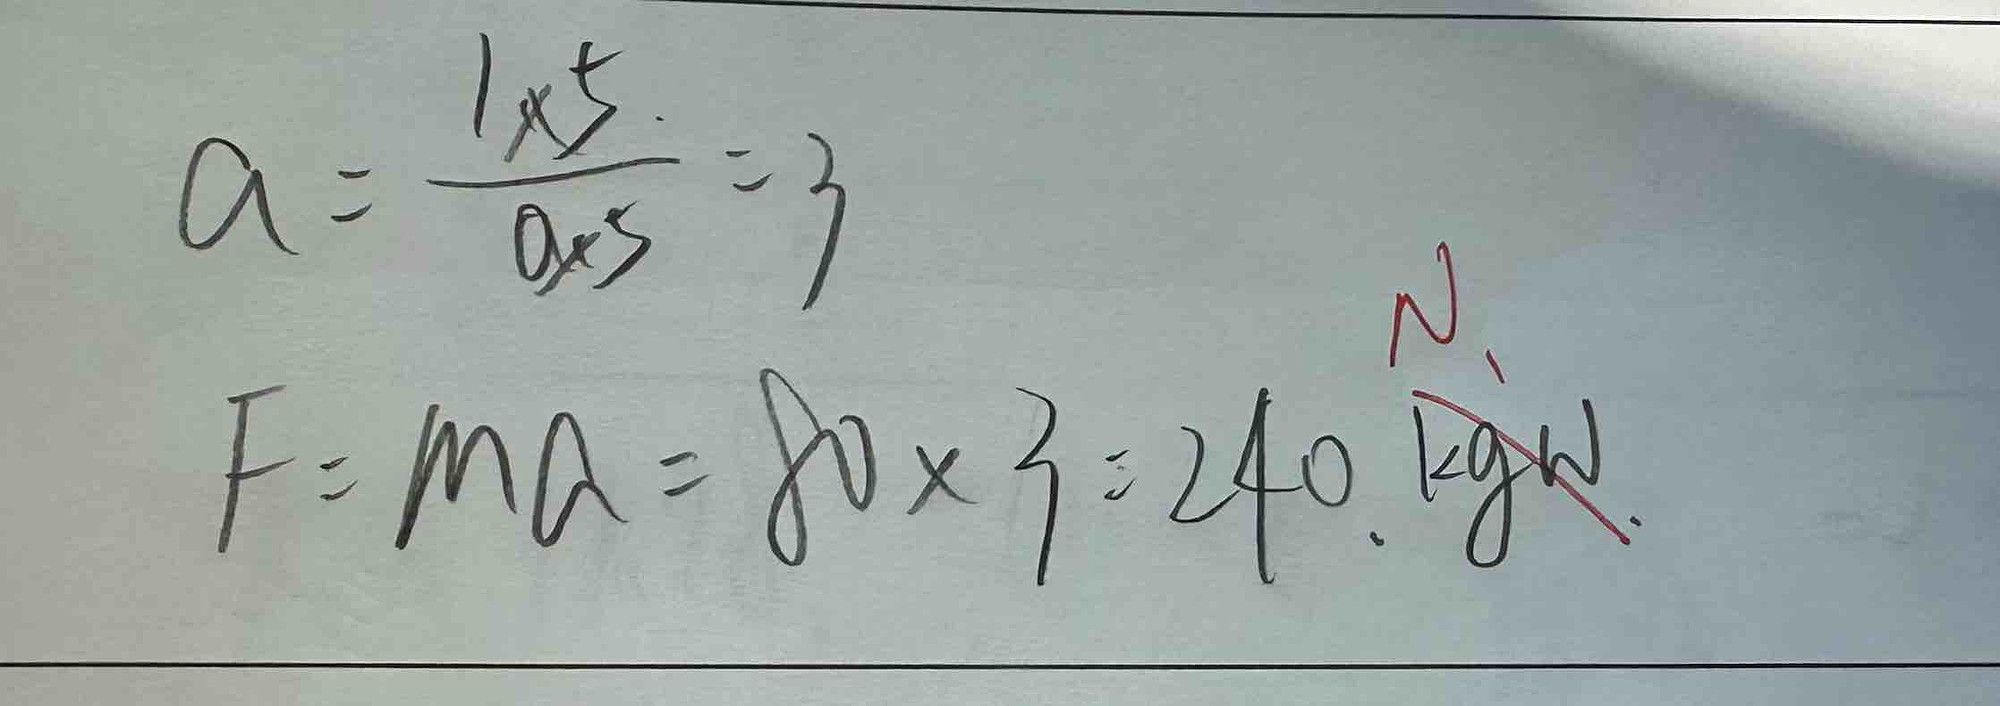 a = 1x5 / 0x5 = 3
N
F = ma = 80 x 3 = 240. kgw.